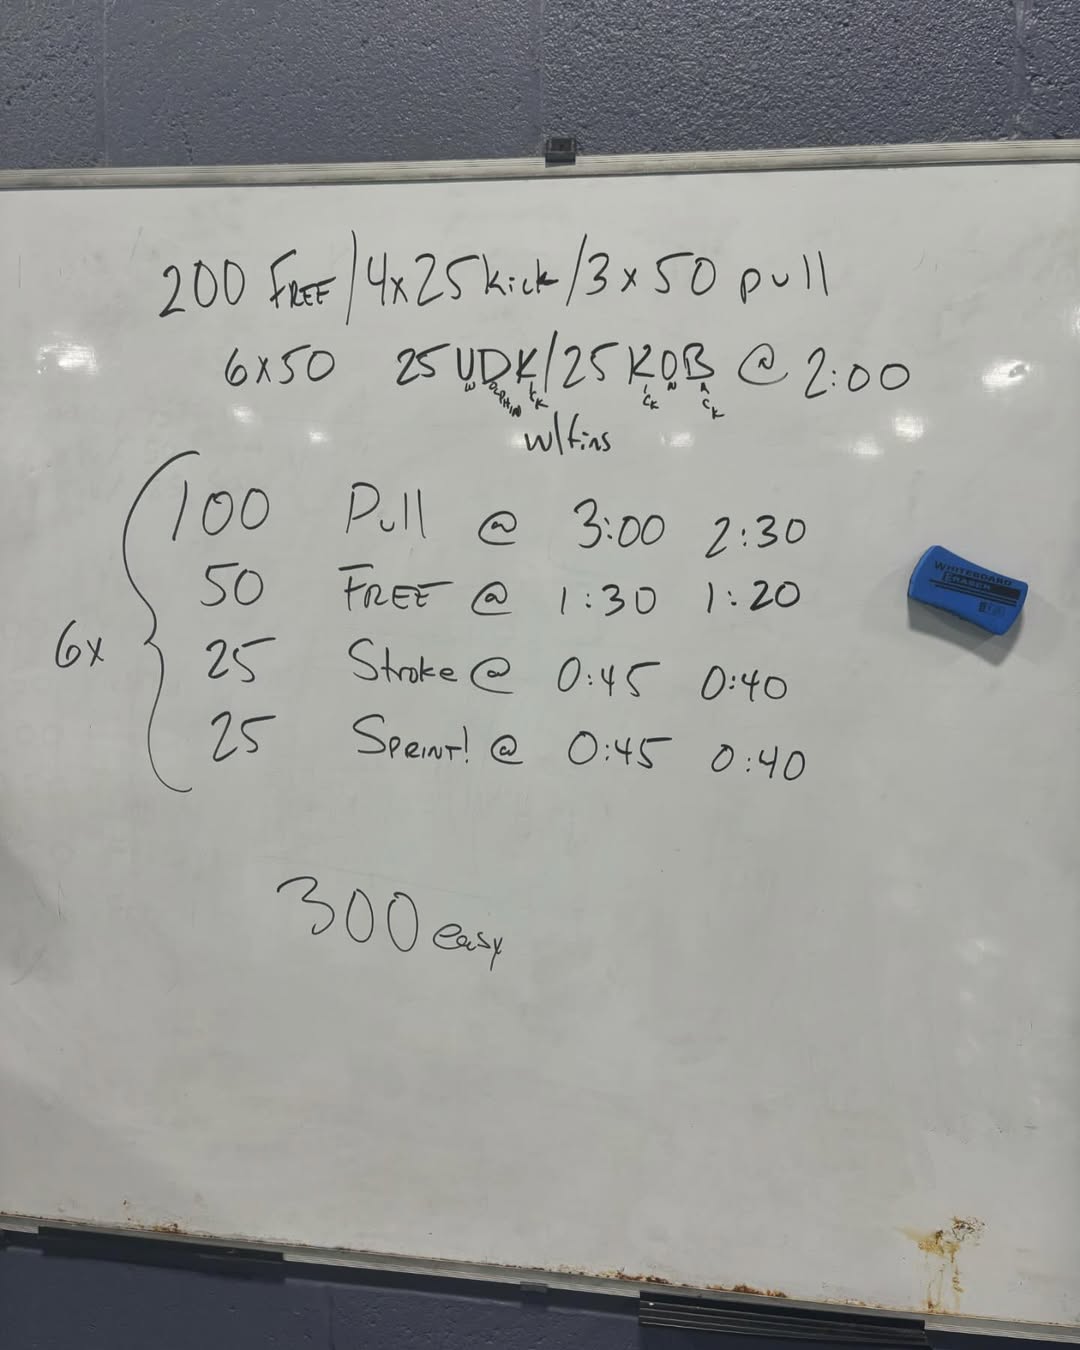 200 FREE/4x25 kick/3x50 pull
6x50 25 UDK/25 KOB @ 2:00
w/fins
100 Pull @ 3:00 2:30
50 FREE @ 1:30 1:20
6x
25 Stroke @ 0:45 0:40
25 SPRINT! @ 0:45 0:40
300 easy
WHITEBOARD
ERASER